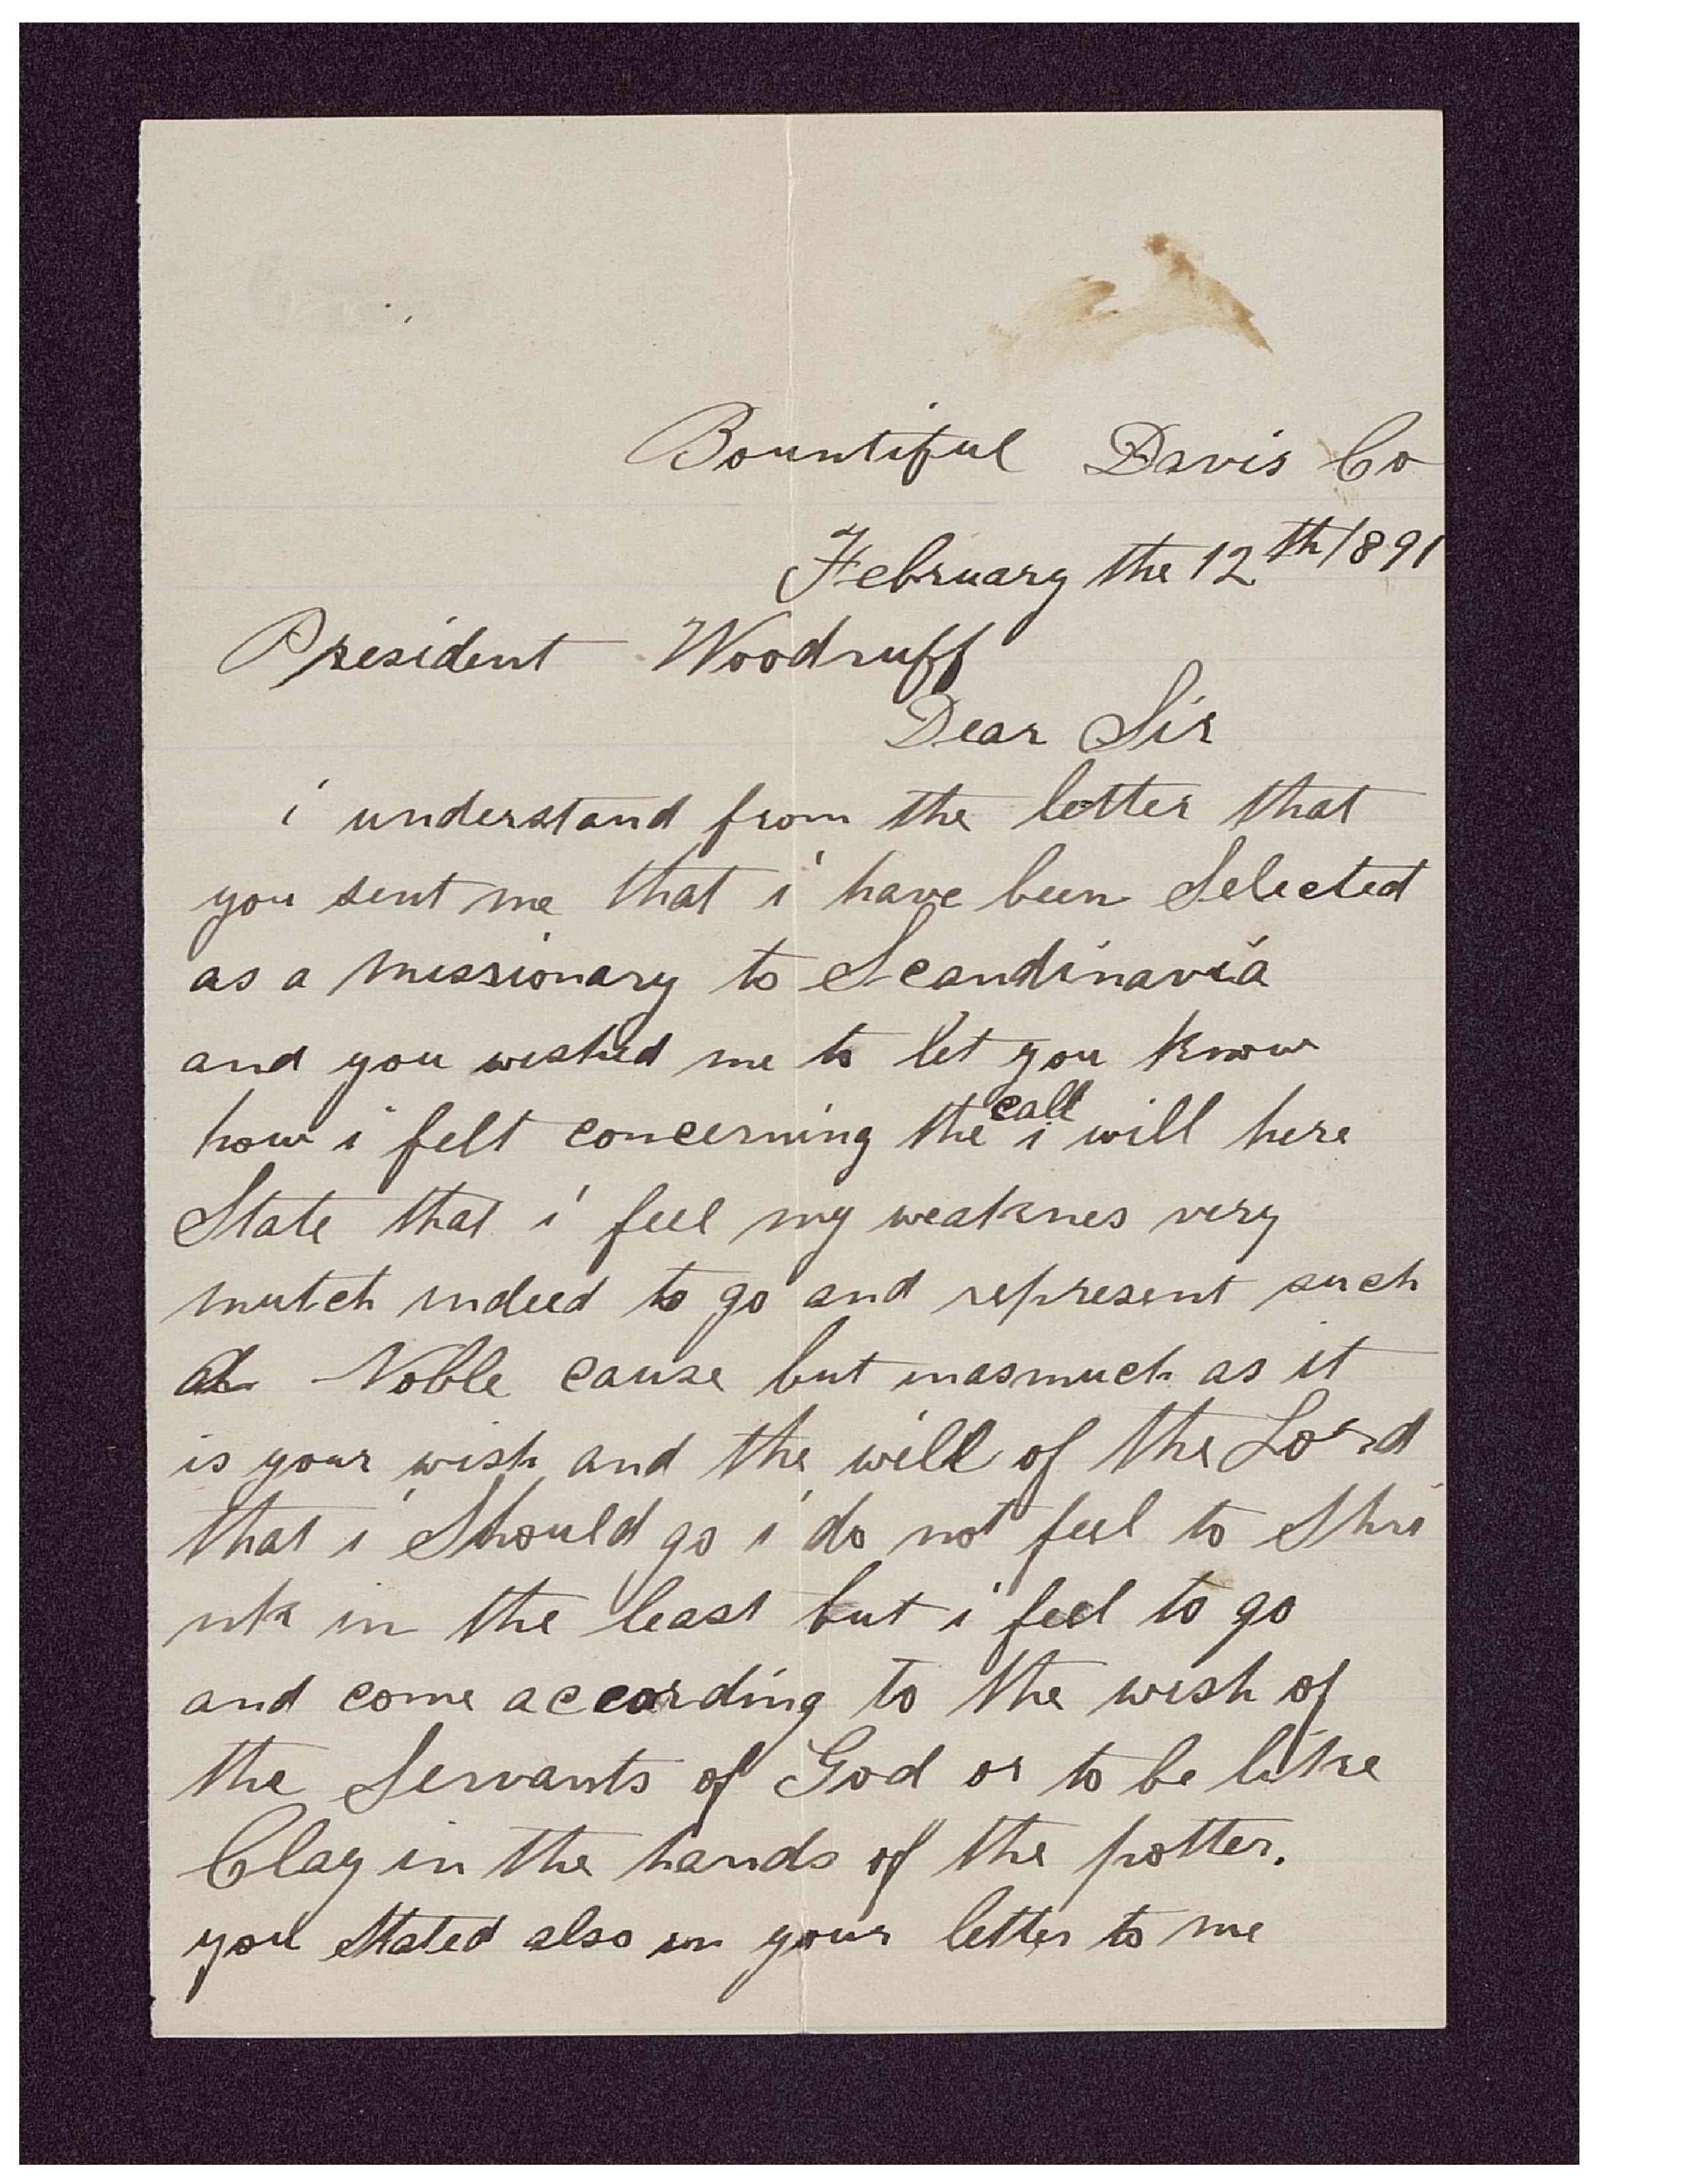 Bountiful Davis Co
February the 12th 1891
President Woodruff
Dear Sir
i understand from the letter that
you sent me that i have been Selected
as a missionary to Scandinavia
and you wished me to let you know
how i felt concerning the call i will here
State that i feel my weaknes very
mutch indeed to go and represent such
a Noble cause but inasmuch as it
is your wish and the will of the Lord
that i Should go i do not feel to Shri
nk in the least but i feel to go
and come according to the wish of
the Servants of God or to be like
Clay in the hands of the potter.
you Stated also in your letter to me